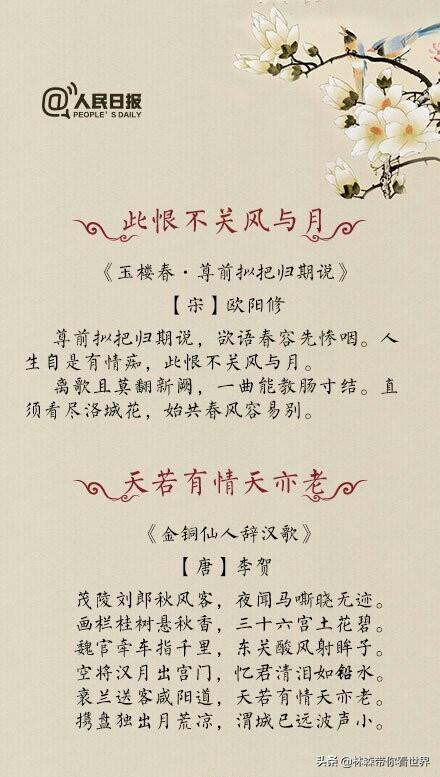 @人民日报
PEOPLE'S DAILY
此恨不关风与月
《玉楼春·尊前拟把归期说》
【宋】欧阳修
尊前拟把归期说，欲语春容先惨咽。人
生自是有情痴，此恨不关风与月。
离歌且莫翻新阕，一曲能教肠寸结。直
须看尽洛城花，始共春风容易别。
天若有情天亦老
《金铜仙人辞汉歌》
【唐】李贺
茂陵刘郎秋风客，夜闻马嘶晓无迹。
画栏桂树悬秋香，三十六宫土花碧。
魏官牵车指千里，东关酸风射眸子。
空将汉月出宫门，忆君清泪如铅水。
衰兰送客咸阳道，天若有情天亦老。
携盘独出月荒凉，渭城已远波声小。
头条 @林森带你看世界